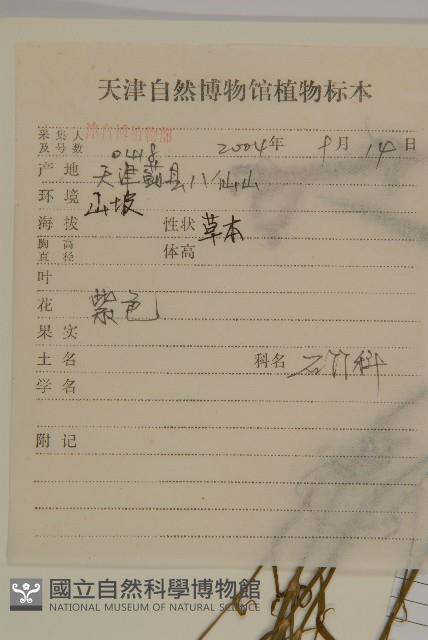 天津自然博物馆植物标本
采集人
及号数 0418 2004年 9月 14日
产地 天津蓟县八仙山
环境 山坡
海拔 性状 草本
胸高
直径 体高
叶
花 紫色
果实
土名 科名 石竹科
学名
附记
國立自然科學博物館
NATIONAL MUSEUM OF NATURAL SCIENCE